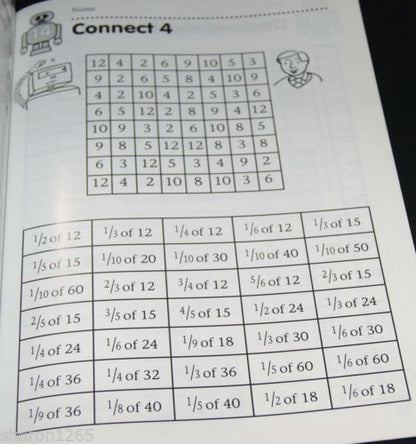 14
Name
Connect 4
12 4 2 6 9 10 5 3
9 2 6 5 8 4 10 9
4 2 10 4 2 5 3 6
6 5 12 2 8 9 4 12
10 9 3 2 6 10 8 5
9 8 5 12 12 8 3 8
6 3 12 5 3 4 9 2
12 4 2 10 8 10 3 6
1/2 of 12 1/3 of 12 1/4 of 12 1/6 of 12 1/3 of 15
1/5 of 15 1/10 of 20 1/10 of 30 1/10 of 40 1/10 of 50
1/10 of 60 2/3 of 12 3/4 of 12 5/6 of 12 2/3 of 15
2/5 of 15 3/5 of 15 4/5 of 15 1/2 of 24 1/3 of 24
1/4 of 24 1/6 of 24 1/9 of 18 1/3 of 30 1/6 of 30
1/4 of 36 1/4 of 32 1/3 of 36 1/5 of 60 1/6 of 60
1/9 of 36 1/8 of 40 1/5 of 40 1/2 of 18 1/6 of 18
sharon1265